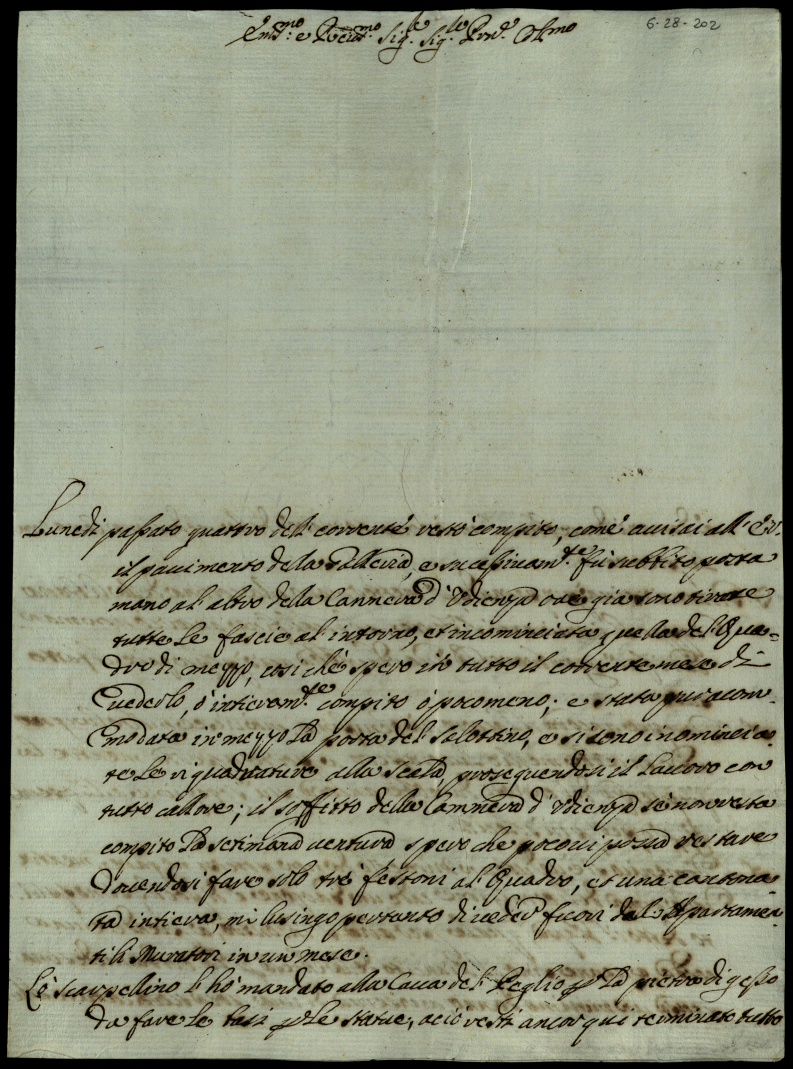 6-28-202
Em.mo e Rev.mo Sig.e Sig.e Pron.e Col.mo
Lunedi passato quattro del corrente restò compito, come avisai all' Ev.
il pavimento della Galleria, e sucessivam.te fù subbito posta
mano al altro della Cammera d' Udienza ove gia sono tirate
tutte le fascie al intorno, et incominciata quella del Qua=
dro di mezzo, cosi chè spero in tutto il corrente mese di
vederlo, ò intieram.te compito ò poco meno; e stata pur acom-
modata in mezzo la porta del Salottino, e si sono incomincia-
te le riquadrature alla Scala, proseguendosi il Lavoro con
tutto calore; il soffitto della Cammera d' Udienza sè non resta
compito la setimana ventura spero che poco vi possa restare
dovendosi fare solo trè festoni al Quadro, et una cantona-
ta intiera, mi lusingo pertanto di veder fuori dal Apartamen-
ti li Muratori in un mese.
Lo scarpellino l' hò mandato alla Cava del Peglio p la pietra di gesso
da fare le basi p le statue, aciò resti ancor qui terminato tutto